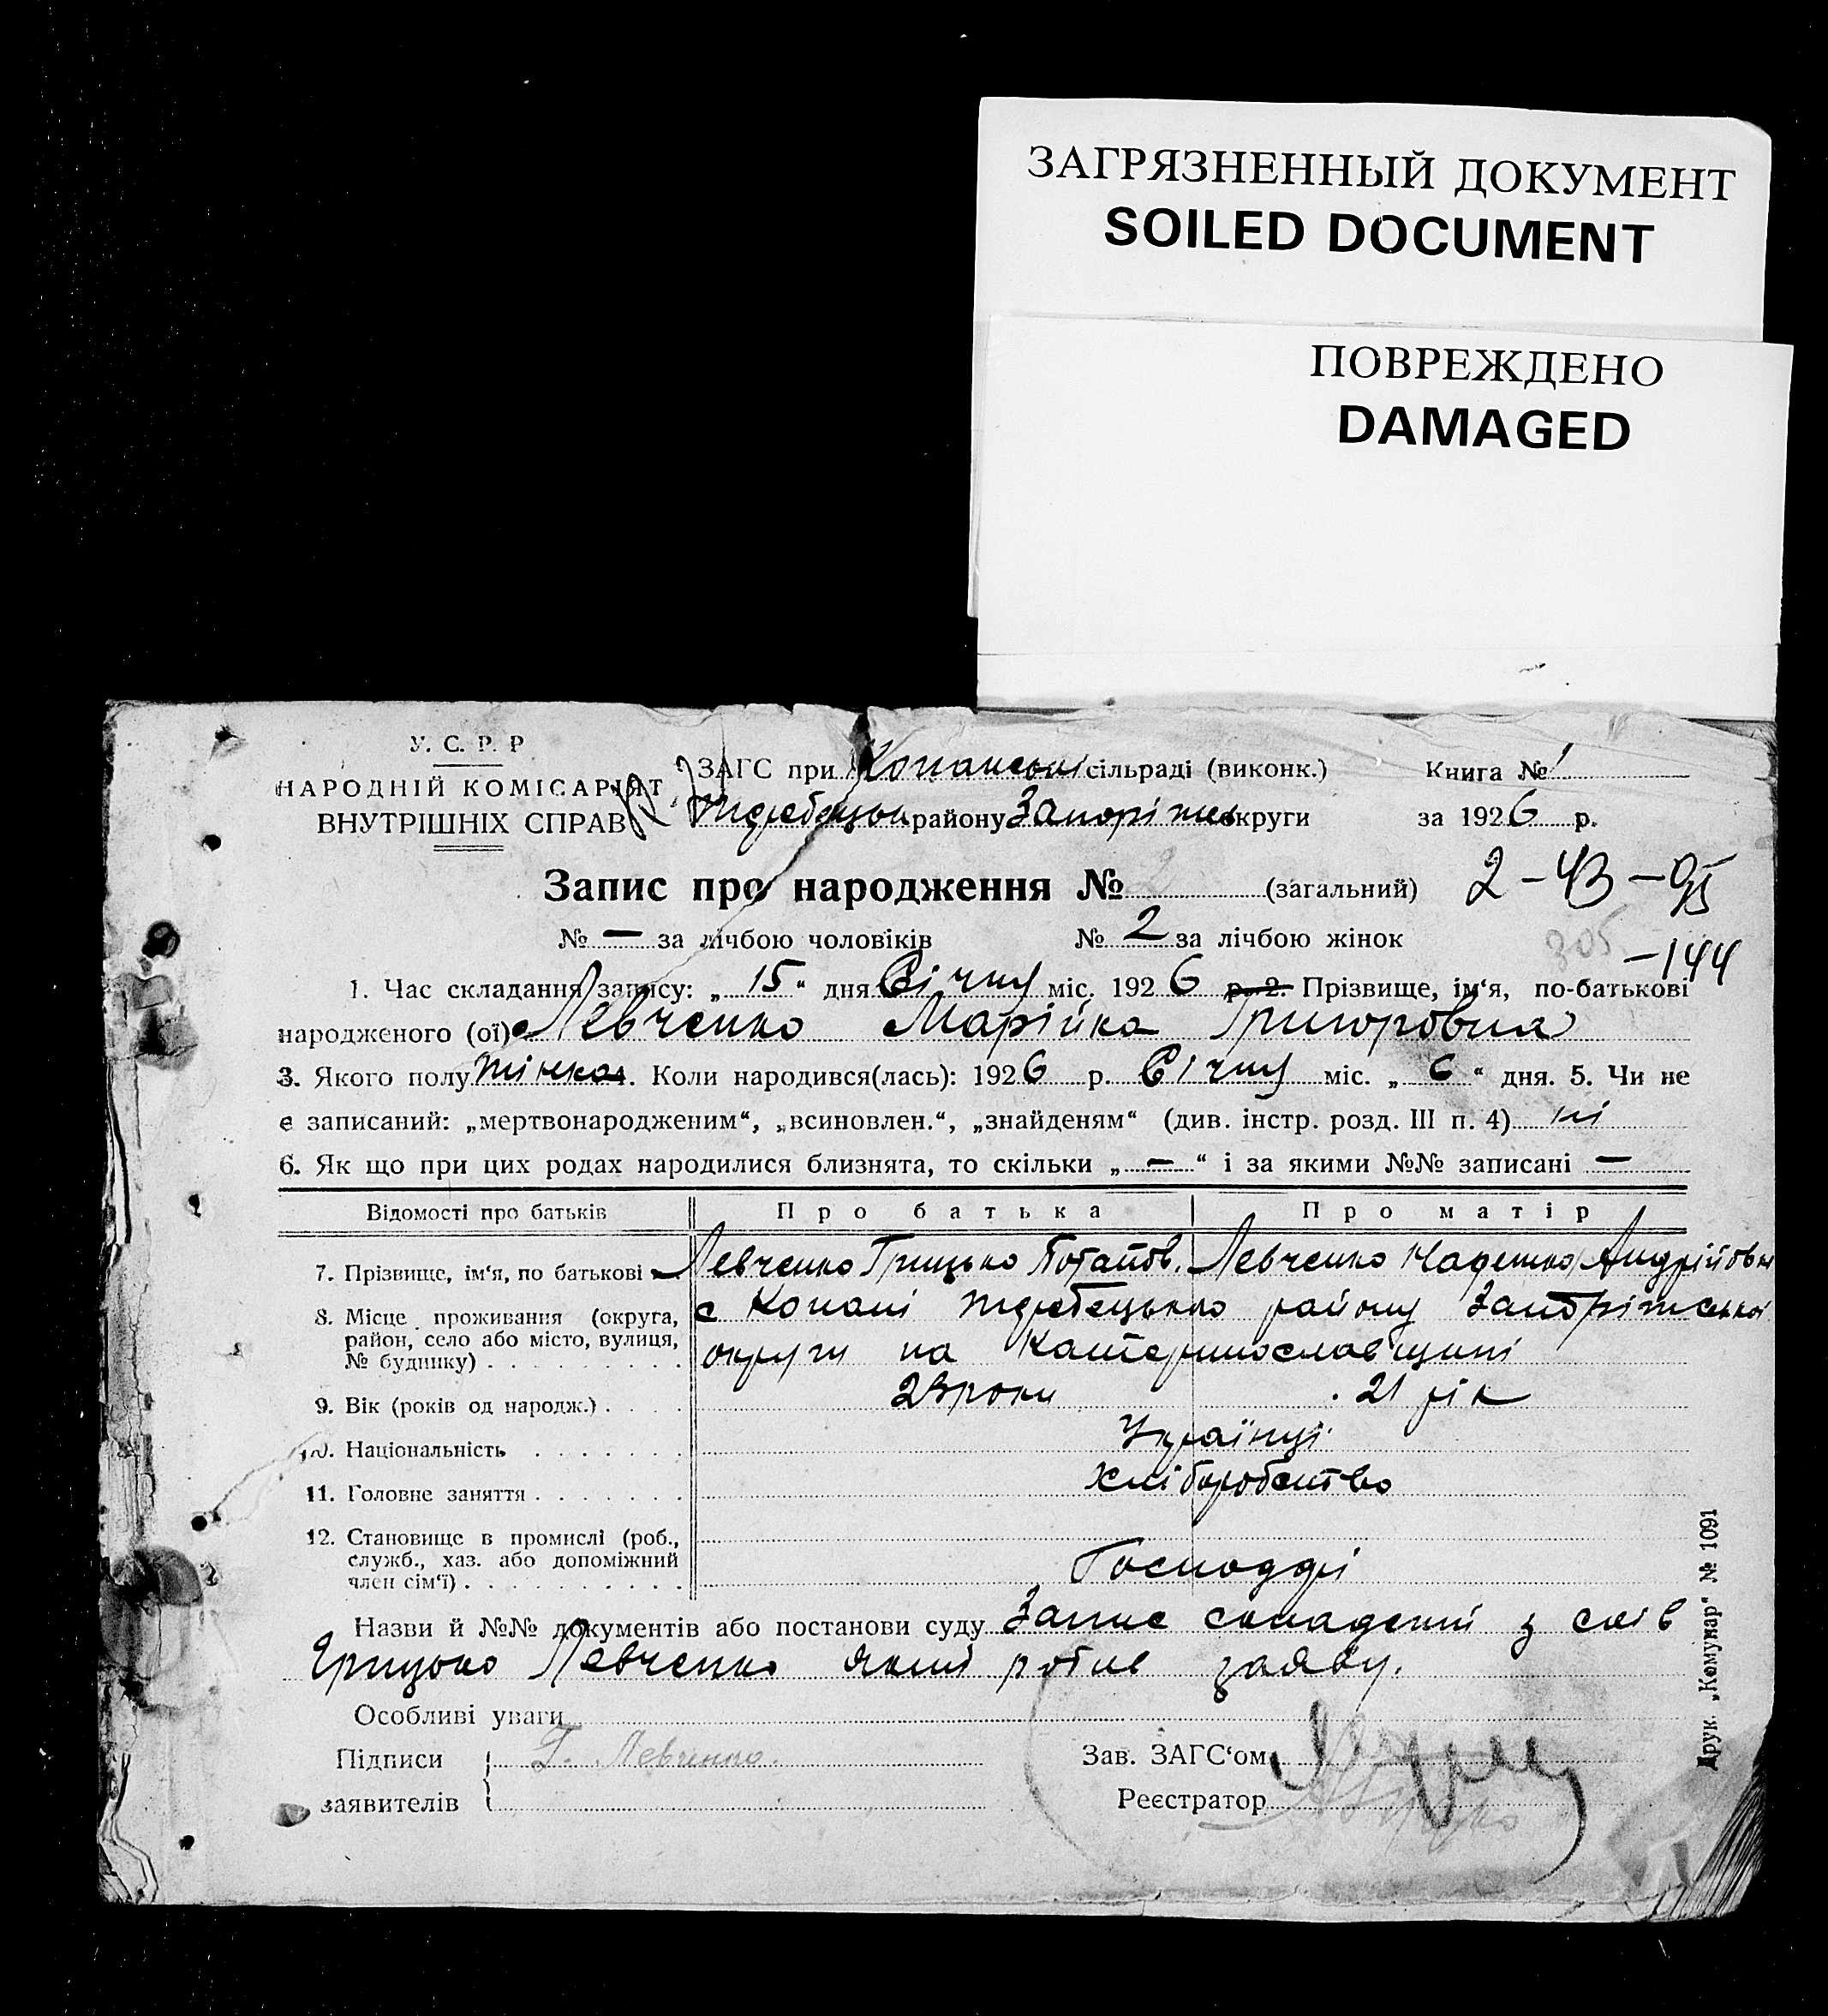 ЗАГРЯЗНЕННЫЙ ДОКУМЕНТ
SOILED DOCUMENT
ПОВРЕЖДЕНО
DAMAGED
У. С. Р. Р
НАРОДНІЙ КОМІСАРІЯТ
ВНУТРІШНІХ СПРАВ
ЗАГС при Копанські сільраді (виконк.) Книга № 1
району Запоріжськ округи за 1926 р.
Запис про народження № 2 (загальний) 2-43-95
№ — за лічбою чоловіків № 2 за лічбою жінок 305 -144
1. Час складання запису: „15“ дня Січня міс. 1926 р. 2. Прізвище, ім‘я, по-батькові
народженого (ої) Левченко Марійка Григоровна
3. Якого полу жінка. Коли народився(лась): 1926 р. Січня міс. „6“ дня. 5. Чи не
є записаний: „мертвонародженим“, „всиновлен.“, „знайденям“ (див. інстр. розд. III п. 4) ні
6. Як що при цих родах народилися близнята, то скільки „—“ і за якими №№ записані —
Відомості про батьків Про батька Про матір
7. Прізвище, ім‘я, по батькові Левченко Грицько Потапов. Левченко Андрійовн
8. Місце проживання (округа, район, село або місто, вулиця, № будинку) с Копані району Запоріжської
округи на Катеринославщині
9. Вік (років од народж.) 23 роки 21 рік
10. Національність Українці
11. Головне заняття хліборобство
12. Становище в промислі (роб., служб., хаз. або допоміжний член сім‘ї)
Господарі
Назви й №№ документів або постанови суду Запис складений з слів
Грицько Левченко який робив заяву.
Особливі уваги
Підписи Г. Левченко. Зав. ЗАГС‘ом
заявителів Реєстратор
Друк. „Комунар“ № 1091